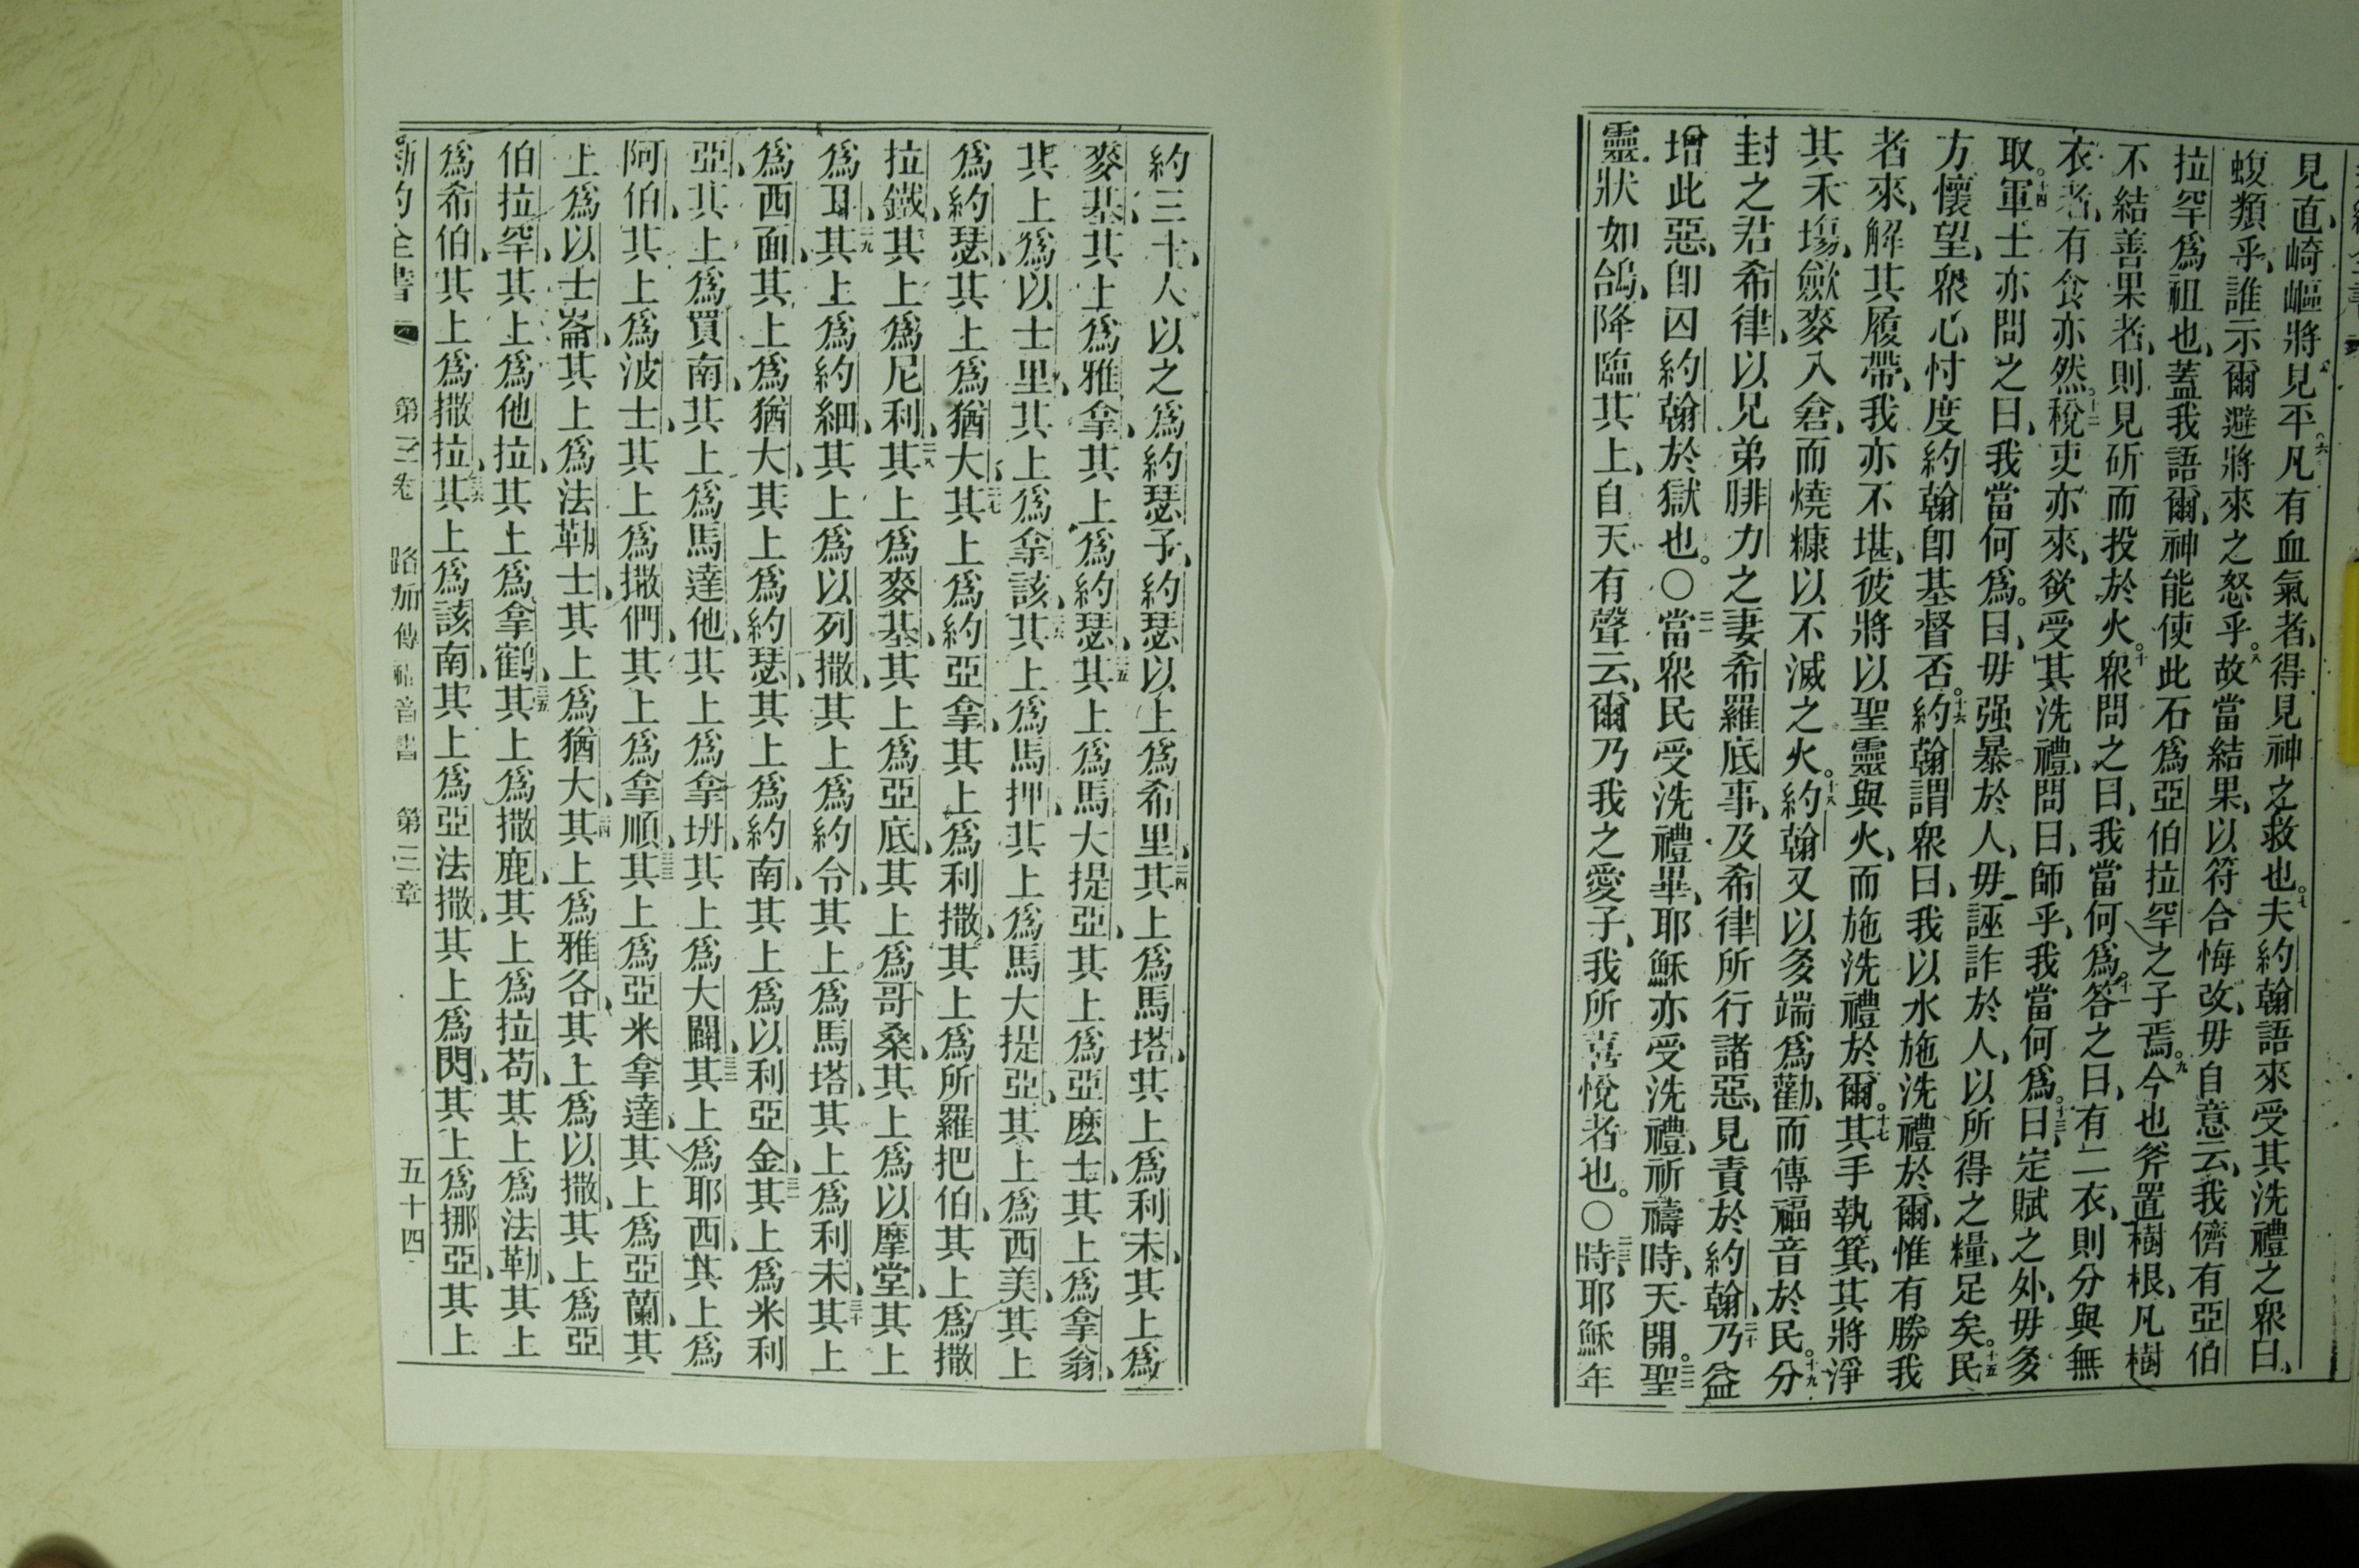 見直、崎嶇將見平。六凡有血氣者、得見神之救也。七夫約翰語來受其洗禮之眾曰、
蝮類乎、誰示爾避將來之怒乎。八故當結果、以符合悔改、毋自意云、我儕有亞伯
拉罕爲祖也、蓋我語爾、神能使此石爲亞伯拉罕之子焉。九今也斧置樹根、凡樹
不結善果者、則見斫而投於火。十眾問之曰、我當何爲。十一答之曰、有二衣、則分與無
衣者、有食亦然。十二稅吏亦來、欲受其洗禮、問曰、師乎、我當何爲。十三曰、定賦之外、毋多
取。十四軍士亦問之曰、我當何爲。曰、毋强暴於人、毋誣詐於人、以所得之糧、足矣。十五民
方懷望、眾心忖度約翰卽基督否。十六約翰謂眾曰、我以水施洗禮於爾、惟有勝我
者來、解其履帶、我亦不堪、彼將以聖靈與火、而施洗禮於爾。十七其手執箕、其將淨
其禾塲、斂麥入倉、而燒糠以不滅之火。十八約翰又以多端爲勸、而傳福音於民。十九分
封之君希律、以兄弟腓力之妻希羅底事、及希律所行諸惡、見責於約翰、二十乃益
增此惡、卽囚約翰於獄也。〇二一當眾民受洗禮畢、耶穌亦受洗禮、祈禱時、天開。二二聖
靈狀如鴿、降臨其上、自天有聲云、爾乃我之愛子、我所喜悅者也。〇二三時、耶穌年
約三十、人以之爲約瑟子、約瑟以上爲希里、二四其上爲馬塔、其上爲利未、其上爲
麥基、其上爲雅拿、其上爲約瑟、二五其上爲馬大提亞、其上爲亞麽士、其上爲拿翁、
其上爲以士里、其上爲拿該、二六其上爲馬押、其上爲馬大提亞、其上爲西美、其上
爲約瑟、其上爲猶大、二七其上爲約亞拿、其上爲利撒、其上爲所羅把伯、其上爲撒
拉鐵、其上爲尼利、二八其上爲麥基、其上爲亞底、其上爲哥桑、其上爲以摩堂、其上
爲耳、二九其上爲約細、其上爲以列撒、其上爲約令、其上爲馬塔、其上爲利未、三十其上
爲西面、其上爲猶大、其上爲約瑟、其上爲約南、其上爲以利亞金、三一其上爲米利
亞、其上爲買南、其上爲馬達他、其上爲拿坍、其上爲大闢、三二其上爲耶西、其上爲
阿伯、其上爲波士、其上爲撒們、其上爲拿順、三三其上爲亞米拿達、其上爲亞蘭、其
上爲以士崙、其上爲法勒士、其上爲猶大、三四其上爲雅各、其上爲以撒、其上爲亞
伯拉罕、其上爲他拉、其上爲拿鶴、三五其上爲撒鹿、其上爲拉苟、其上爲法勒、其上
爲希伯、其上爲撒拉、三六其上爲該南、其上爲亞法撒、其上爲閃、其上爲挪亞、其上
新約全書 第三卷 路加傳福音書 第三章 五十四